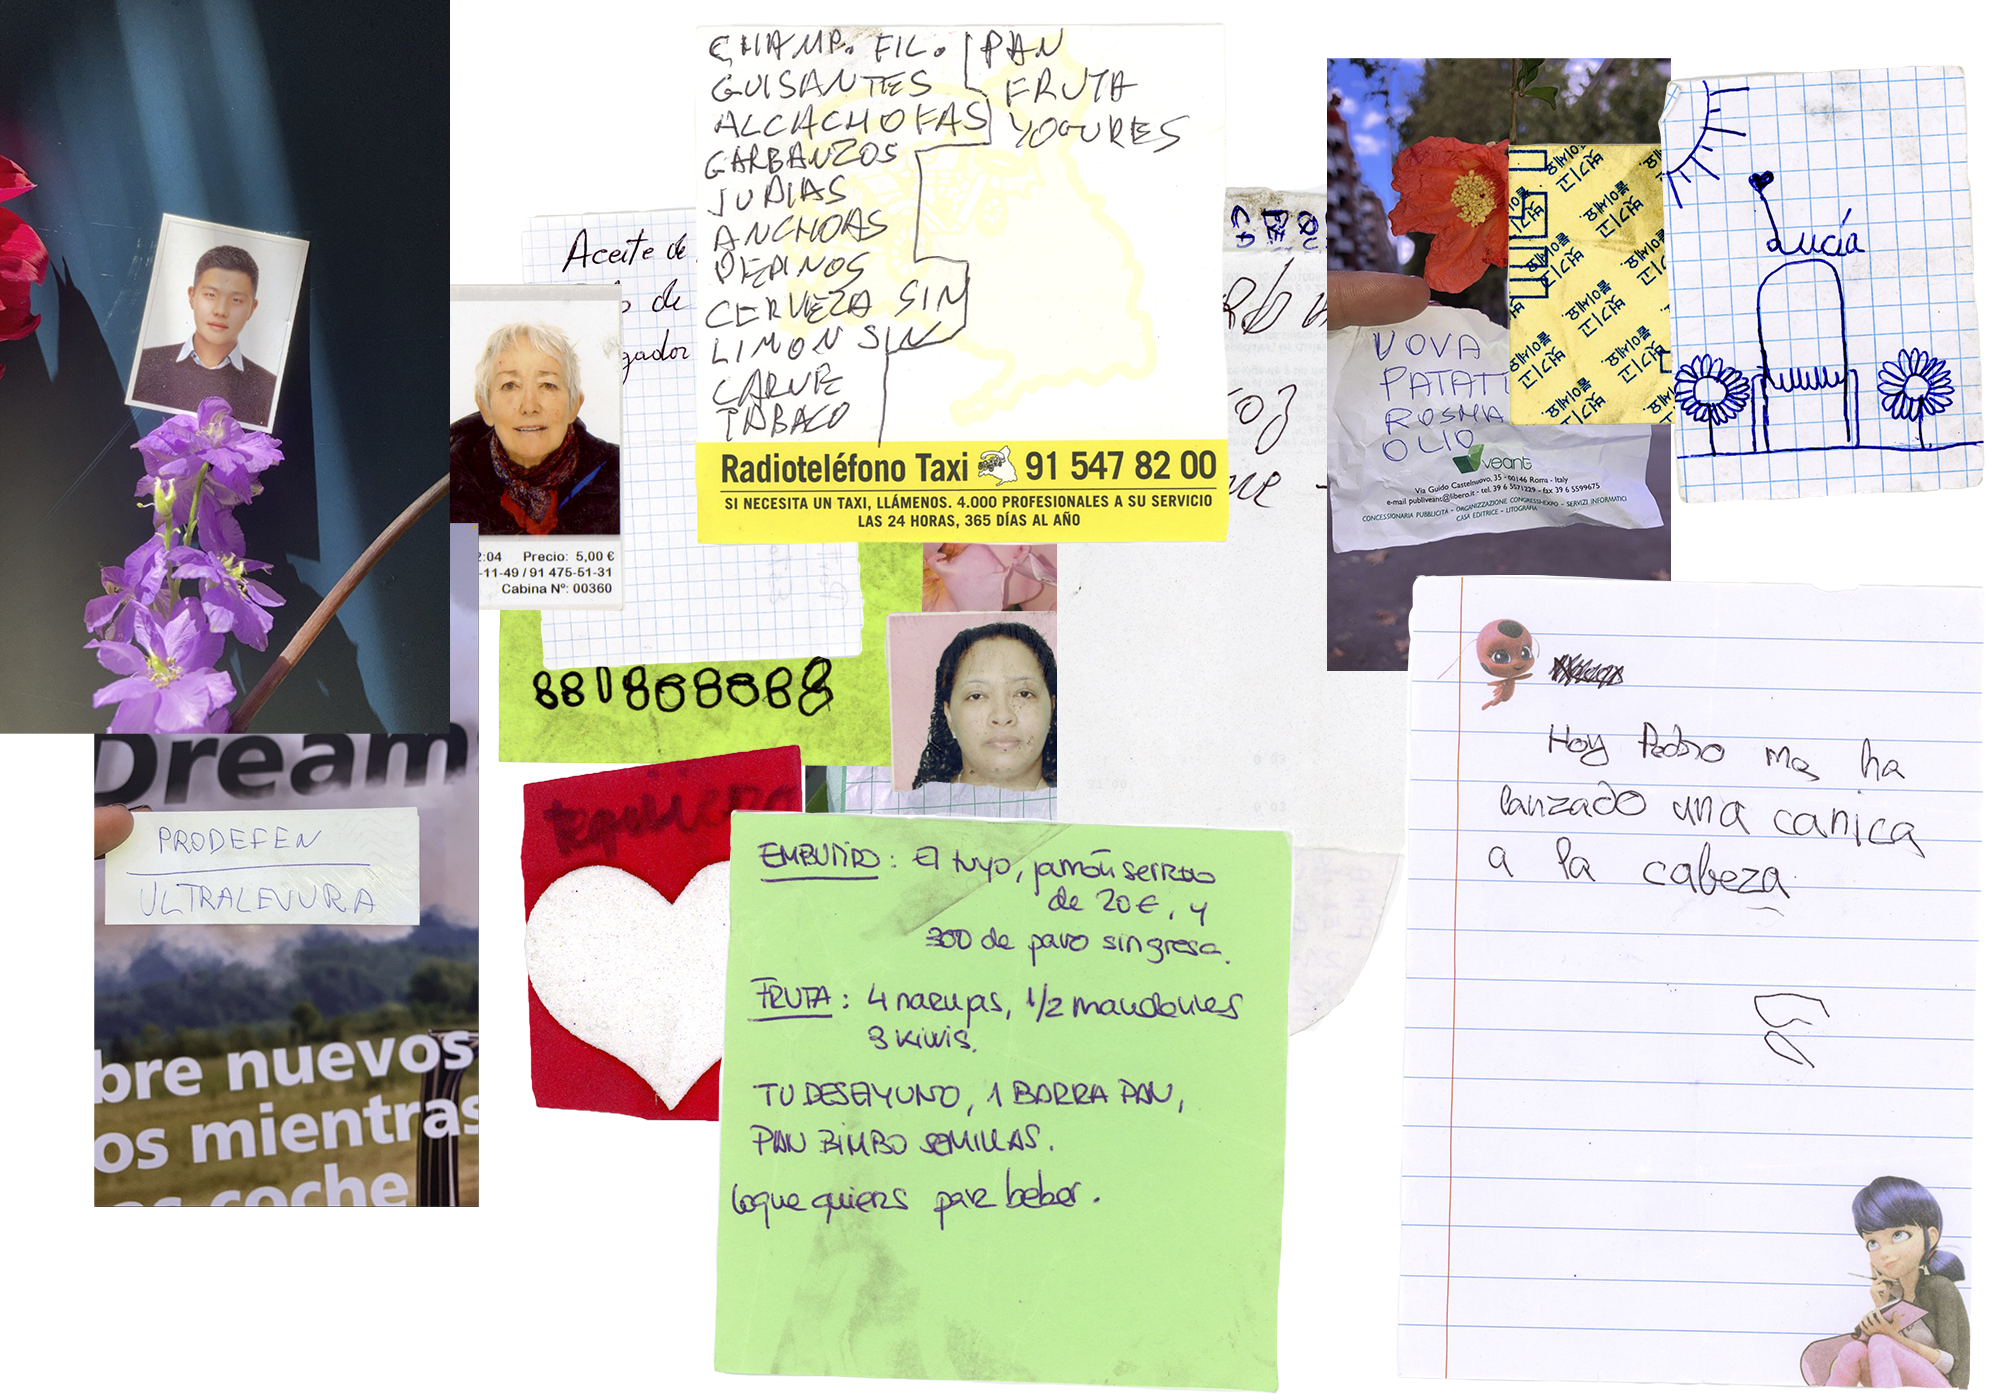 CHAMP. FIL.
GUISANTES
ALCACHOFAS
GARBANZOS
JUDIAS
ANCHOAS
PEPINOS
CERVEZA SIN
LIMON SIN
CARNE
TABACO
PAN
FRUTA
YOGURES
Radioteléfono Taxi 91 547 82 00
SI NECESITA UN TAXI, LLÁMENOS. 4.000 PROFESIONALES A SU SERVICIO
LAS 24 HORAS, 365 DÍAS AL AÑO
Aceite de
de
gador
2:04 Precio: 5,00 €
-11-49 / 91 475-51-31
Cabina Nº: 00360
UOVA
PATAT
ROSMA
OLIO
veant
Via Guido Castelnuovo, 35 - 00146 Roma - Italy
e-mail publiveant@libero.it - tel. 39 6 5571229 - fax 39 6 5599675
CONCESSIONARIA PUBBLICITÀ - ORGANIZZAZIONE CONGRESSI-EXPO - SERVIZI INFORMATICI
CASA EDITRICE - LITOGRAFIA
벗기고
붙이세요.
Lucía
Dream
PRODEFEN
ULTRALEVURA
bre nuevos
os mientras
coche
te quiero
EMBUTIDO: El tuyo, jamón serrano
de 20€, y
300 de pavo sin grasa.
FRUTA: 4 naranjas, 1/2 mandarinas
3 kiwis.
TU DESAYUNO, 1 BARRA PAN,
PAN BIMBO SEMILLAS.
lo que quieras para beber.
Hoy Pedro me ha
lanzado una canica
a la cabeza